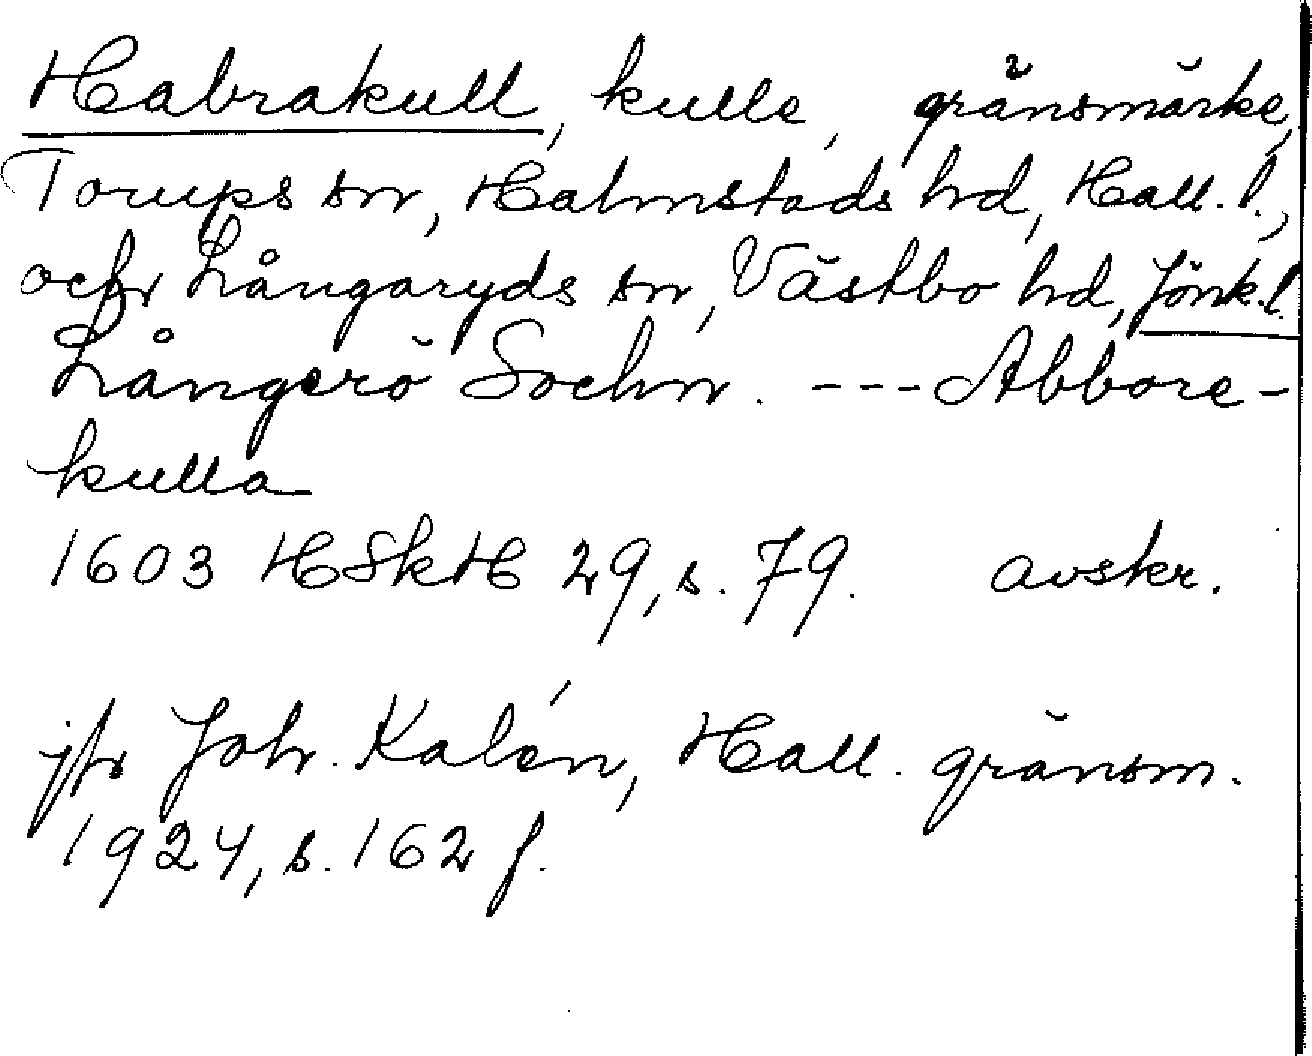 Habrakull, kulle, gränsmärke,
Torups sn, Halmstads hd, Hall. l.,
och Långaryds sn, Västbo hd, Jönk. l.
Långerö Sochn. --- Abbore-
kulla
1603 HSkH 29, s. 79. avskr.
jfr Joh. Kalén, Hall. gränsm.
1924, s. 162 f.